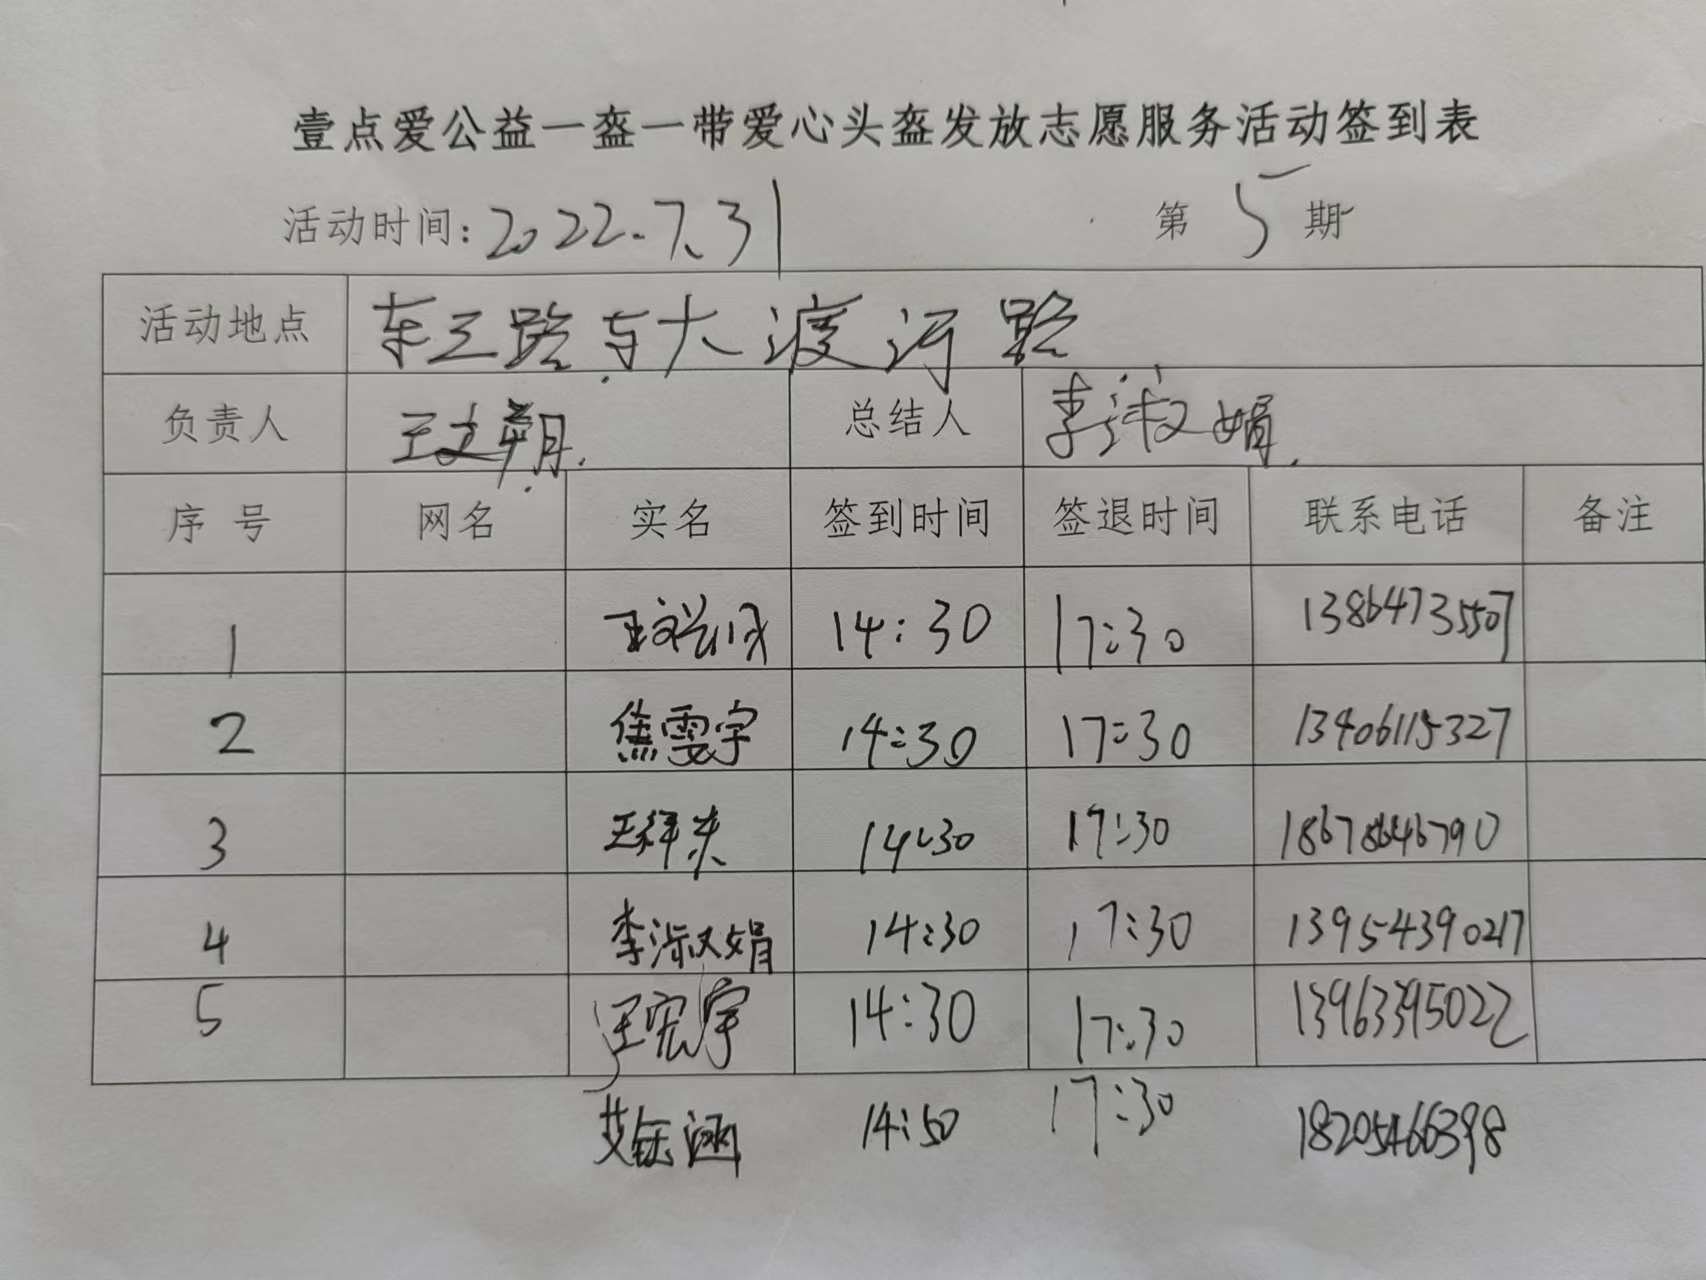 壹点爱公益一盔一带爱心头盔发放志愿服务活动签到表
活动时间:2022.7.31 第5期
活动地点 东三路与大渡河路
负责人 王文朔 总结人 李淑娟
序号 网名 实名 签到时间 签退时间 联系电话 备注
1 14:30 17:30 13864735507
2 焦雯宇 14:30 17:30 13406115327
3 王祥东 14:30 17:30 18678646790
4 李淑娟 14:30 17:30 13954390217
5 王宪宇 14:30 17:30 13963395022
艾钰涵 14:50 17:30 18205466398